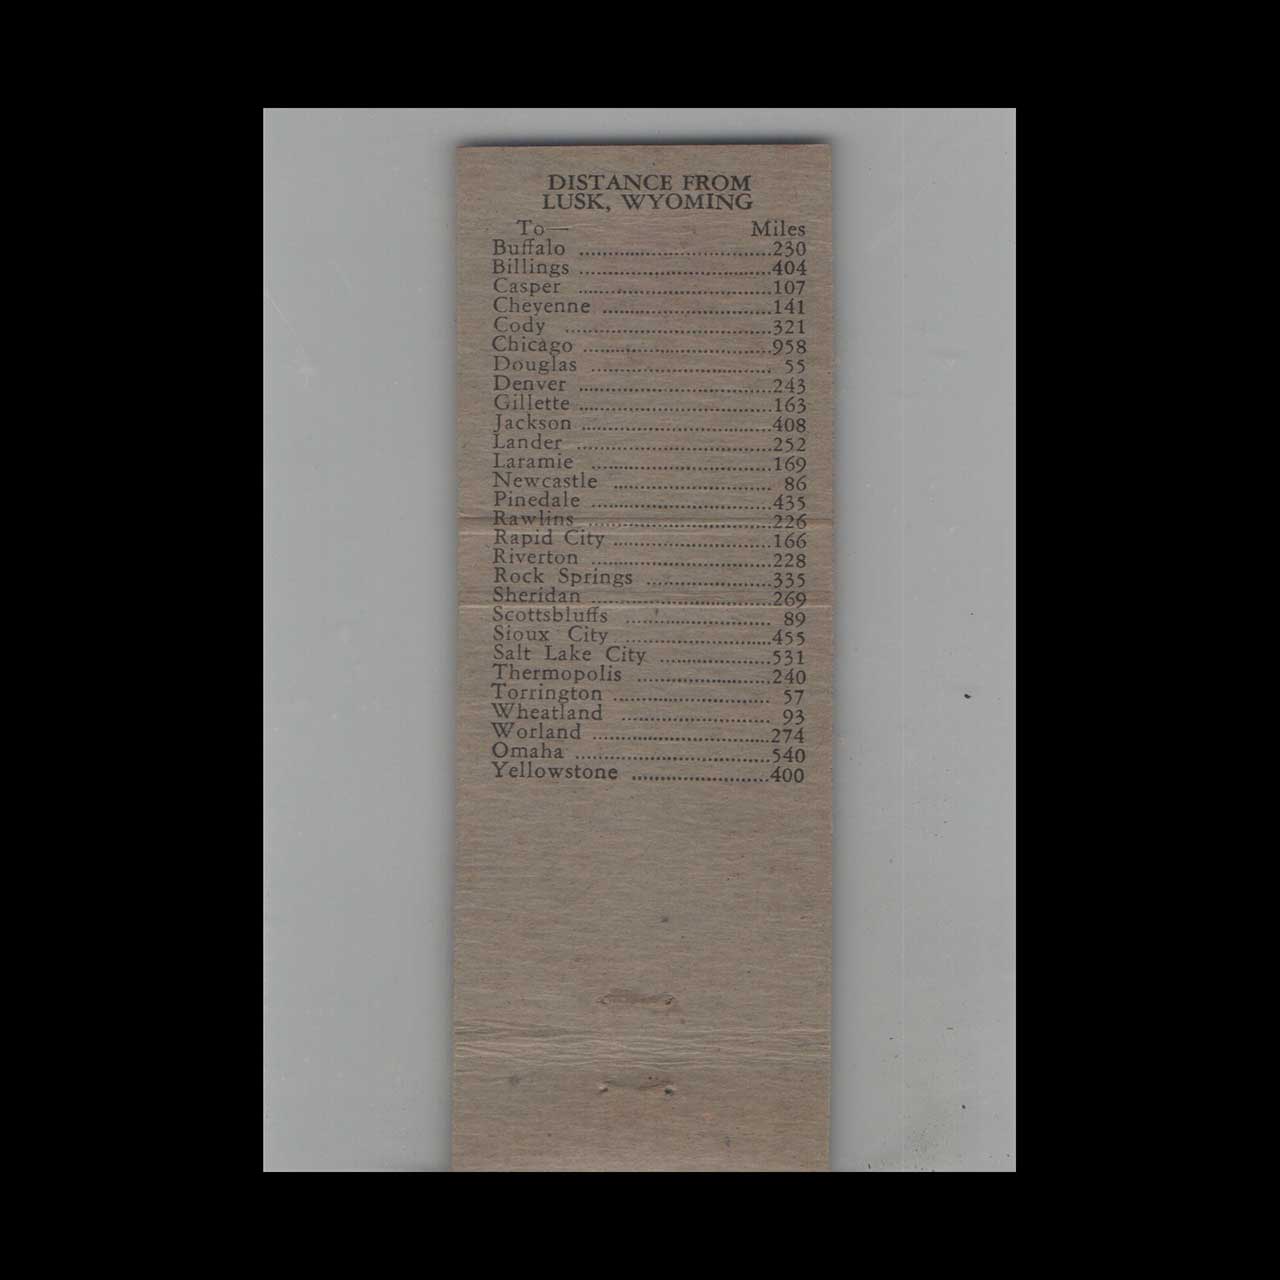 DISTANCE FROM
LUSK, WYOMING
To— Miles
Buffalo ........................................230
Billings ........................................404
Casper ........................................107
Cheyenne ...................................141
Cody ...........................................321
Chicago .......................................958
Douglas ...................................... 55
Denver ........................................243
Gillette ........................................163
Jackson .......................................408
Lander ........................................252
Laramie ......................................169
Newcastle ................................. 86
Pinedale ......................................435
Rawlins .......................................226
Rapid City .................................166
Riverton ......................................228
Rock Springs ..........................335
Sheridan .....................................269
Scottsbluffs .............................. 89
Sioux City ...............................455
Salt Lake City .......................531
Thermopolis ............................240
Torrington ................................. 57
Wheatland ............................... 93
Worland .....................................274
Omaha ........................................540
Yellowstone .............................400